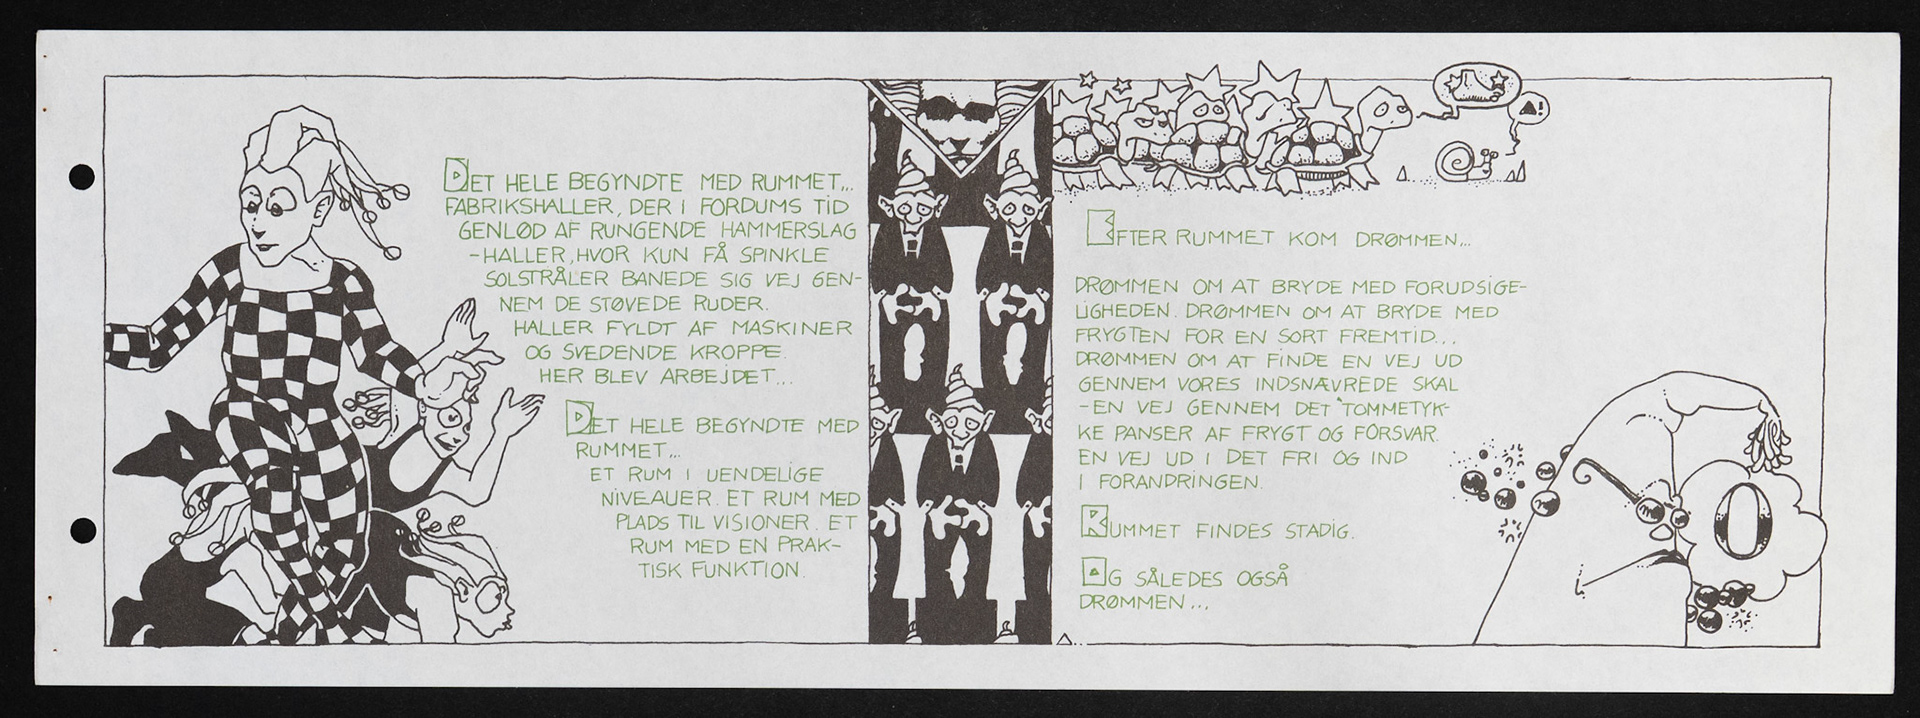 DET HELE BEGYNDTE MED RUMMET...
FABRIKSHALLER, DER I FORDUMS TID
GENLØD AF RUNGENDE HAMMERSLAG
-HALLER, HVOR KUN FÅ SPINKLE
SOLSTRÅLER BANEDE SIG VEJ GEN-
NEM DE STØVEDE RUDER.
HALLER FYLDT AF MASKINER
OG SVEDENDE KROPPE.
HER BLEV ARBEJDET...
DET HELE BEGYNDTE MED
RUMMET...
ET RUM I UENDELIGE
NIVEAUER. ET RUM MED
PLADS TIL VISIONER. ET
RUM MED EN PRAK-
TISK FUNKTION.
EFTER RUMMET KOM DRØMMEN...
DRØMMEN OM AT BRYDE MED FORUDSIGE-
LIGHEDEN. DRØMMEN OM AT BRYDE MED
FRYGTEN FOR EN SORT FREMTID...
DRØMMEN OM AT FINDE EN VEJ UD
GENNEM VORES INDSNÆVREDE SKAL
-EN VEJ GENNEM DET TOMMETYK-
KE PANSER AF FRYGT OG FORSVAR.
EN VEJ UD I DET FRI OG IND
I FORANDRINGEN.
RUMMET FINDES STADIG.
OG SÅLEDES OGSÅ
DRØMMEN...